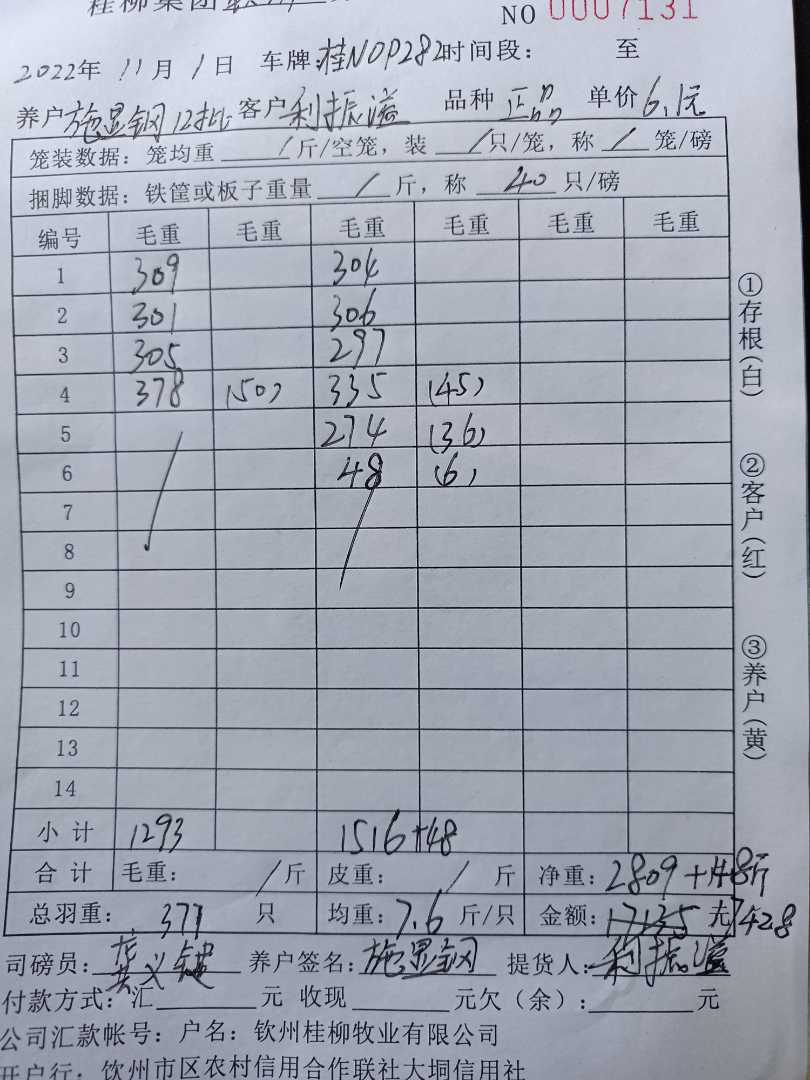 桂柳集团
NO 0007131
2022年 11月 1日 车牌:桂N0P282时间段: 至
养户施显钢12批 客户利振溢 品种 正品 单价6.1元
笼装数据: 笼均重 / 斤/空笼, 装 / 只/笼, 称 / 笼/磅
捆脚数据: 铁筐或板子重量 / 斤, 称 40 只/磅
编号 毛重 毛重 毛重 毛重 毛重 毛重
1 309 304
2 301 306
3 305 297
4 378 (50) 335 (45)
5 274 (36)
6 48 (6)
7
8
9
10
11
12
13
14
小计 1293 1516+48
合计 毛重: / 斤 皮重: / 斤 净重: 2809+48斤
总羽重: 377 只 均重: 7.6 斤/只 金额: 17135 元 17428
司磅员: 义 养户签名: 施显钢 提货人: 利振溢
付款方式: 汇 元 收现 元欠(余): 元
公司汇款帐号: 户名: 钦州桂柳牧业有限公司
开户行: 钦州市区农村信用合作联社大垌信用社
①存根(白)
②客户(红)
③养户(黄)